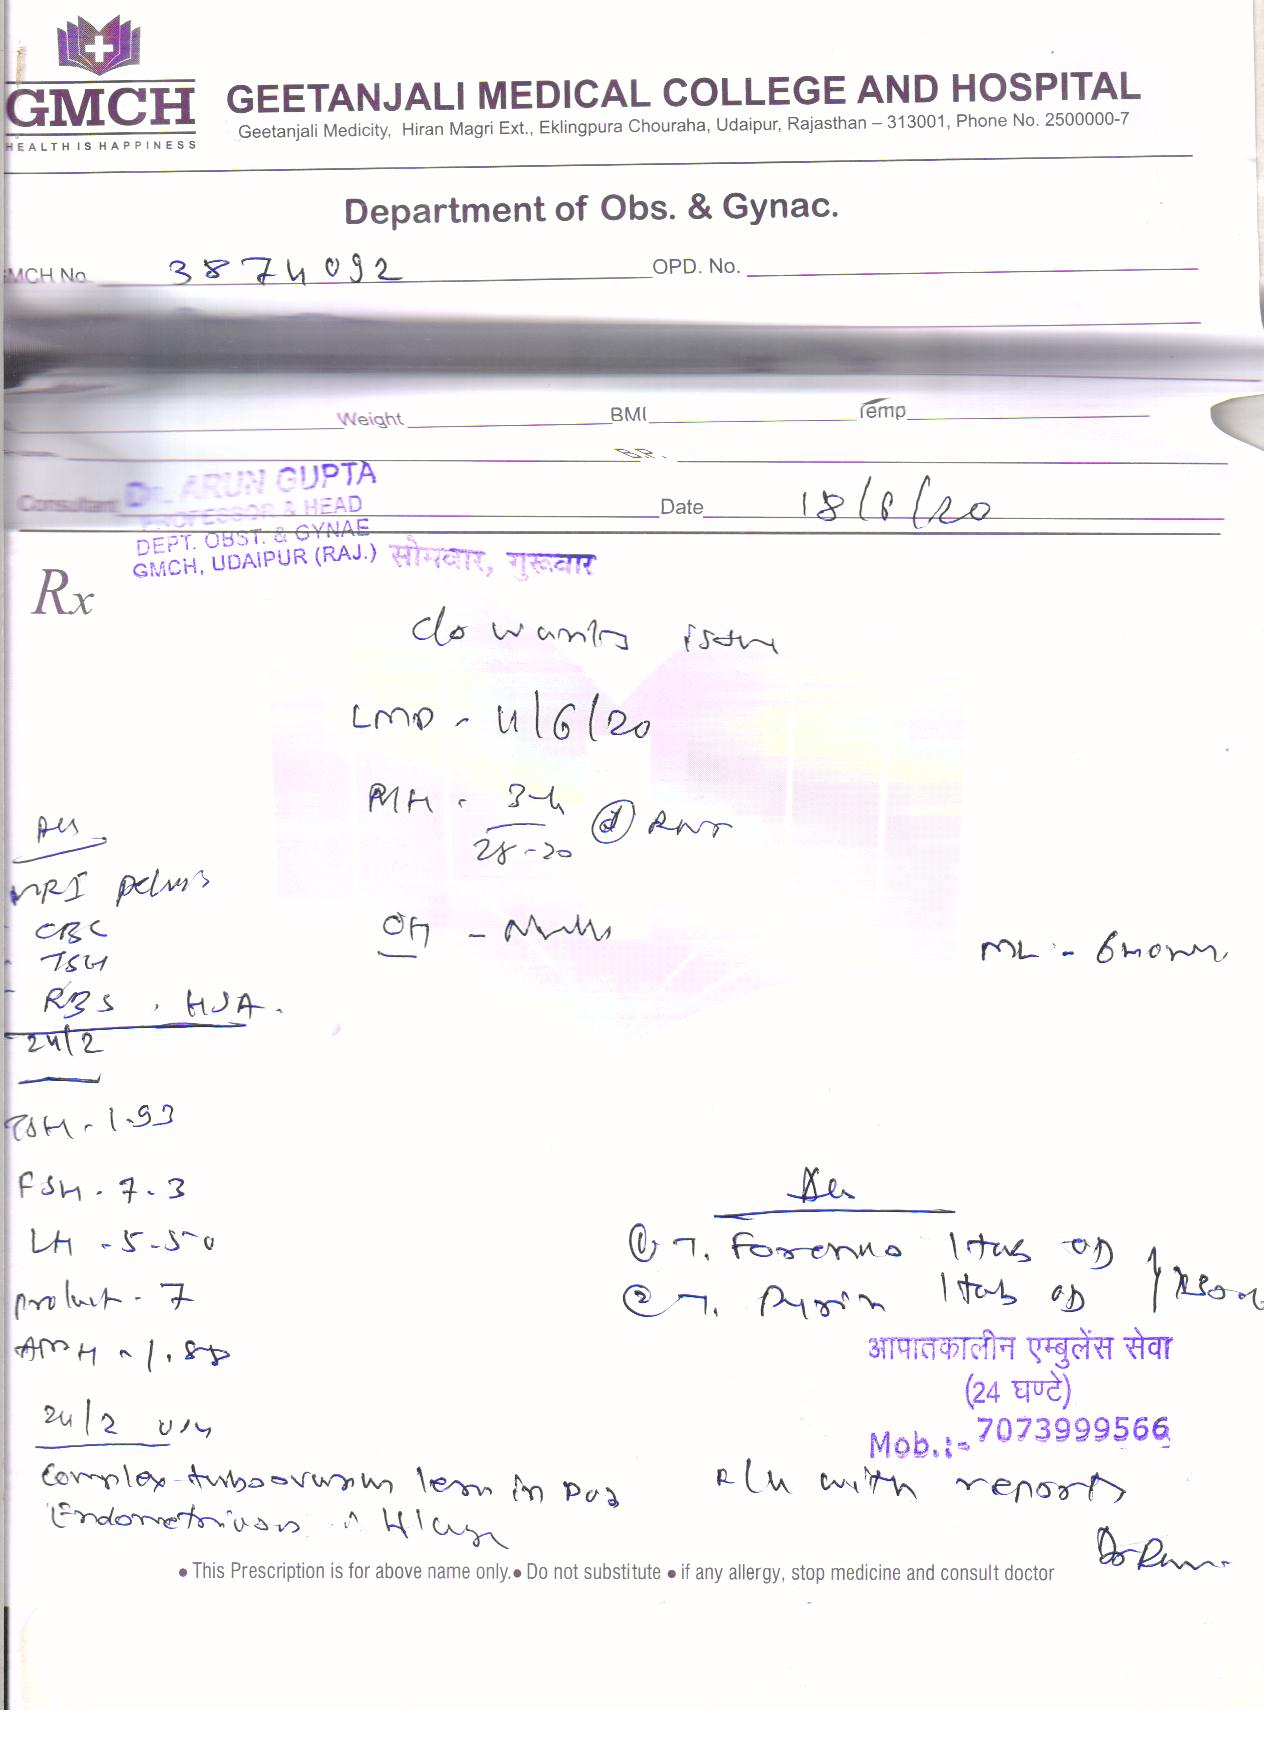 GMCH
HEALTH IS HAPPINESS
GEETANJALI MEDICAL COLLEGE AND HOSPITAL
Geetanjali Medicity, Hiran Magri Ext., Eklingpura Chouraha, Udaipur, Rajasthan – 313001, Phone No. 2500000-7
Department of Obs. & Gynac.
MCH No. 3874092 OPD. No.
Weight BMI Temp
B.P.
Consultant Dr. ARUN GUPTA
PROFESSOR & HEAD
DEPT. OBST. & GYNAE
GMCH, UDAIPUR (RAJ.) सोमवार, गुरूवार
Date 18/6/20
Rx
c/o wants issue
LMP - 11/6/20
MH - 3-4
28-30
OH -
ML - 6
MRI pelvis
- CBC
- TSH
- RBS, HSA.
24/2
TSH - 1.93
FSH - 7.3
LH - 5.50
prolact - 7
AMH - 1.88
24/2 USG
Complex tuboovarian in POD
① T. 1 tab OD
② T. 1 tab OD
आपातकालीन एम्बुलेंस सेवा
(24 घण्टे)
Mob.:- 7073999566
with reports
• This Prescription is for above name only. • Do not substitute • if any allergy, stop medicine and consult doctor